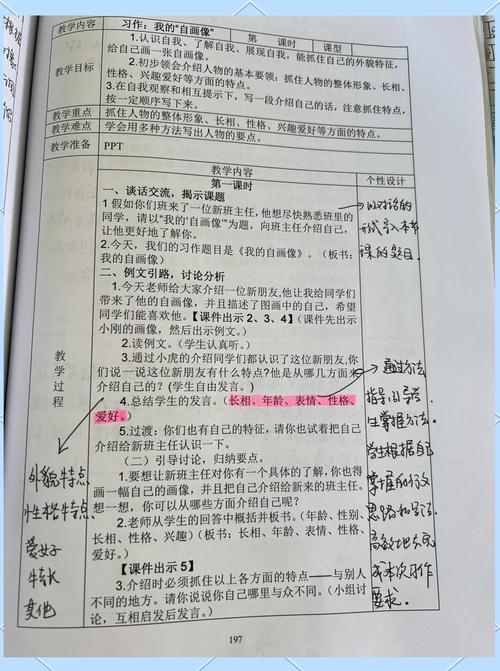 教学内容
习作：我的“自画像”
第 课时
课型
教学目标
1.认识自我、了解自我、展现自我，能抓住自己的外貌特征，
给自己画一张自画像。
2.初步领会介绍人物的基本要领：抓住人物的整体形象、长相、
性格、兴趣爱好等方面的特点。
3.在自我观察和相互提示下，写一段介绍自己的话，注意抓住特点，
按一定顺序写下来。
教学重点
抓住人物的整体形象、长相、性格、兴趣爱好等方面的特点。
教学难点
学会用多种方法写出人物的特点。
教学准备
PPT
教学过程
教学内容
个性设计
第一课时
一、谈话交流，揭示课题
1 假如你们班来了一位新班主任，他想尽快熟悉班里的
同学，请以“我的‘自画像’”为题，向班主任介绍自己，
让他更好地了解你。
2.今天，我们的习作题目是《我的自画像》。（板书：
我的自画像）
二、例文引路，讨论分析
1.今天老师给大家介绍一位新朋友，他让我给同学们
带来了他的自画像，并且描述了图画中的自己，希望
同学们能喜欢他。【课件出示 2、3、4】（课件先出示
小刚的画像，然后出示例文。）
2.读例文。（学生认真听。）
3.通过小虎的介绍同学们都认识了这位新朋友，你
们说一说这位新朋友有什么特点？他是从哪几方面来
介绍自己的？（学生自由发言。）
4.总结学生的发言。（长相、年龄、表情、性格、
爱好。）
5.过渡：你们也有自己的特征，请你也试着把自己
介绍给新班主任认识一下。
（二）引导讨论，归纳要点。
1.要想让新班主任对你有一个具体的了解，你也得
画一幅自己的画像，并且把自己介绍给新来的班主任。
想一想，你可以从哪些方面介绍自己呢？
2.老师从学生的回答中概括并板书。（年龄、性别、
长相、性格、兴趣）（板书：长相、年龄、表情、性格、
爱好。）
【课件出示 5】
3.介绍时必须抓住以上各方面的特点——与别人
不同的地方。请你说说你自己哪里与众不同。（小组讨
论，互相启发后发言。）
以对话的
形式引入本节
课的题目
通过方法
指导引导学
生掌握方法。
学生根据自己
掌握的行文
思路和方法
高效地去完
成本次习作
要求。
外貌特点
性格特点
爱好
特长
其他
197